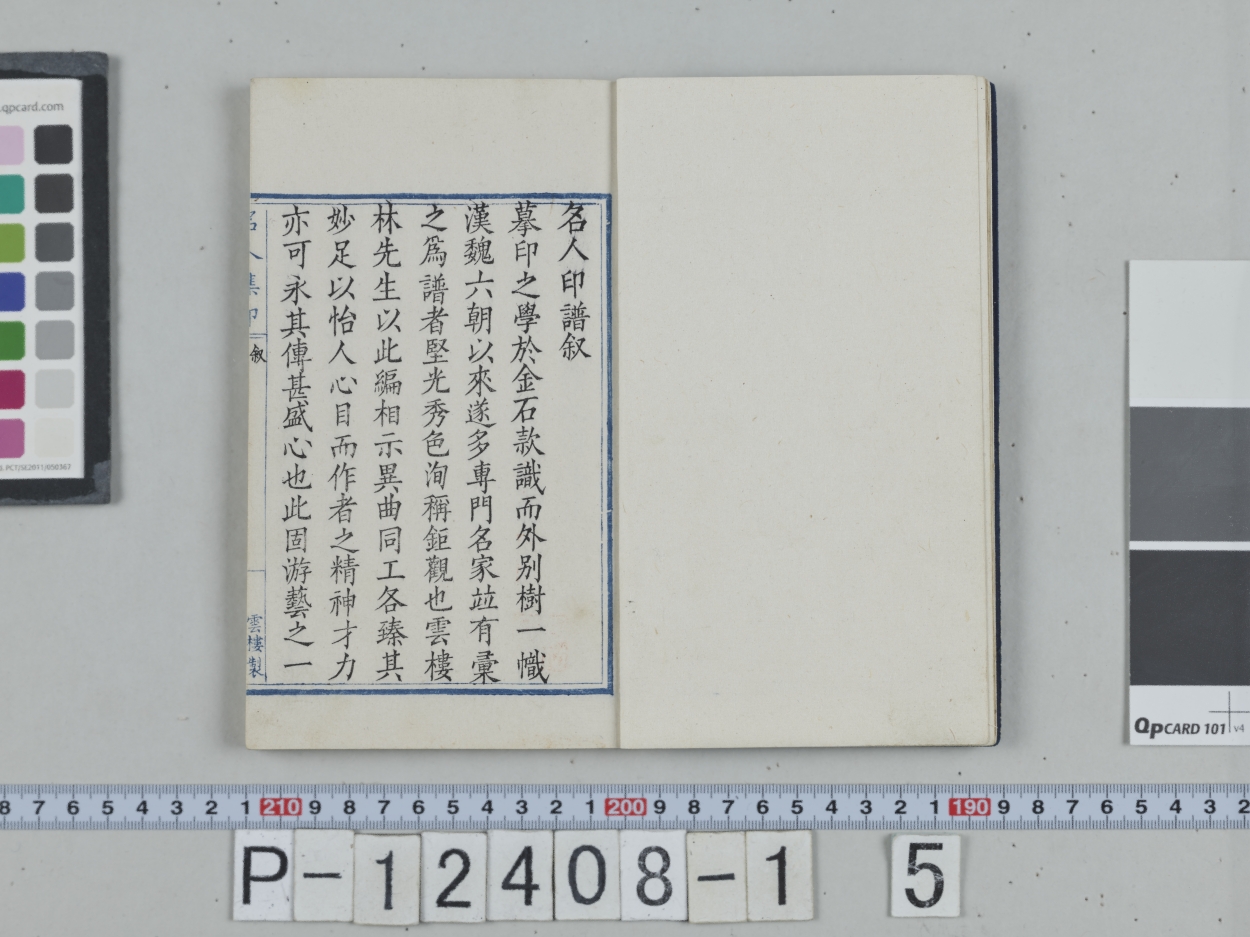 名人印譜叙
摹印之學於金石款識而外别樹一幟
漢魏六朝以來遂多専門名家竝有彙
之爲譜者堅光秀色洵稱鉅觀也雲樓
林先生以此編相示異曲同工各臻其
妙足以怡人心目而作者之精神才力
亦可永其傳甚盛心也此固游藝之一
名人集印
叙
雲樓製
.qpcard.com
8 7 6 5 4 3 2 1 210 9 8 7 6 5 4 3 2 1 200 9 8 7 6 5 4 3 2 1 190 9 8 7 6 5 4 3 2
QPCARD 101 v4
P-12408-1 5